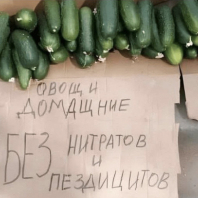 ОВОЩИ
ДОМАЩНИЕ
БЕЗ НИТРАТОВ
И
ПЕЗДИЦИТОВ